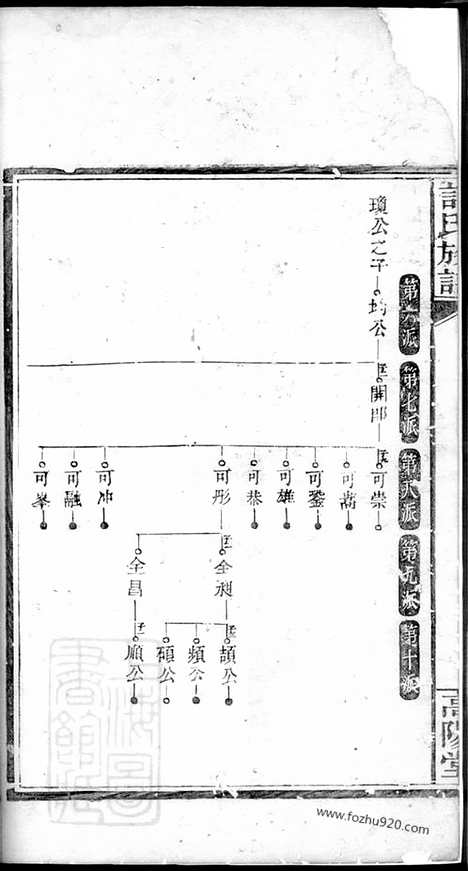 許氏族譜
高陽堂
第六派
第七派
第八派
第九派
第十派
瓊公之子
均公
長
開邦
長
可崇
可嵩
可鑒
可雄
可恭
可彤
可冲
可融
可峯
長
全昶
全昌
長
頡公
頖公
碩公
長
願公
www.fozhu920.com